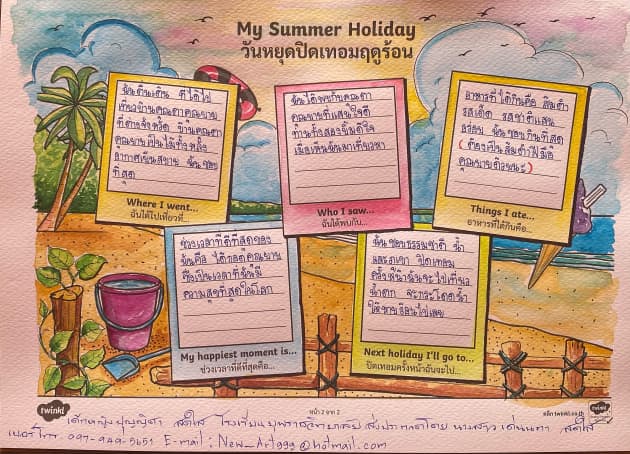 My Summer Holiday
วันหยุดปิดเทอมฤดูร้อน
ฉันตื่นเต้น ที่ได้ไป
เที่ยวบ้านคุณตาคุณยาย
ที่ต่างจังหวัด บ้านคุณตา
คุณยายเป็นไม้ทั้งหลัง
อากาศเย็นสบาย ฉันชอบ
ที่สุด
Where I went...
ฉันได้ไปเที่ยวที่...
ฉันได้พบกับคุณตา
คุณยายที่แสนใจดี
ท่านทั้งสองยิ้มดีใจ
เมื่อเห็นฉันมาเที่ยวหา
Who I saw...
ฉันได้พบกับ...
อาหารที่ได้กินคือ ส้มตำ
รสเด็ด รสชาติแสน
อร่อย ฉันชอบกินที่สุด
(ต้องเป็นส้มตำฝีมือ
คุณยายด้วยนะ)
Things I ate...
อาหารที่ได้กินคือ...
ช่วงเวลาที่ดีที่สุดของ
ฉันคือ ได้กอดคุณยาย
ซึ่งเป็นเวลาที่ฉันมี
ความสุขที่สุดในโลก
My happiest moment is...
ช่วงเวลาที่ดีที่สุดคือ...
ฉันชอบธรรมชาติ น้ำ
และภูเขา ปิดเทอม
ครั้งหน้าฉันจะไปเที่ยว
น้ำตก จะกระโดดน้ำ
ให้หายร้อนไปเลย
Next holiday I'll go to...
ปิดเทอมครั้งหน้าฉันจะไป...
twinkl
หน้า 2 จาก 2
คลิก twinkl.co.th
twinkl
เด็กหญิง ปุญญิศา สดใส โรงเรียน ส่งประกวดโดย นางสาว เด่นนภา สดใส
เบอร์โทร 097-949-5651 E-mail : New_Art999@hotmail.com